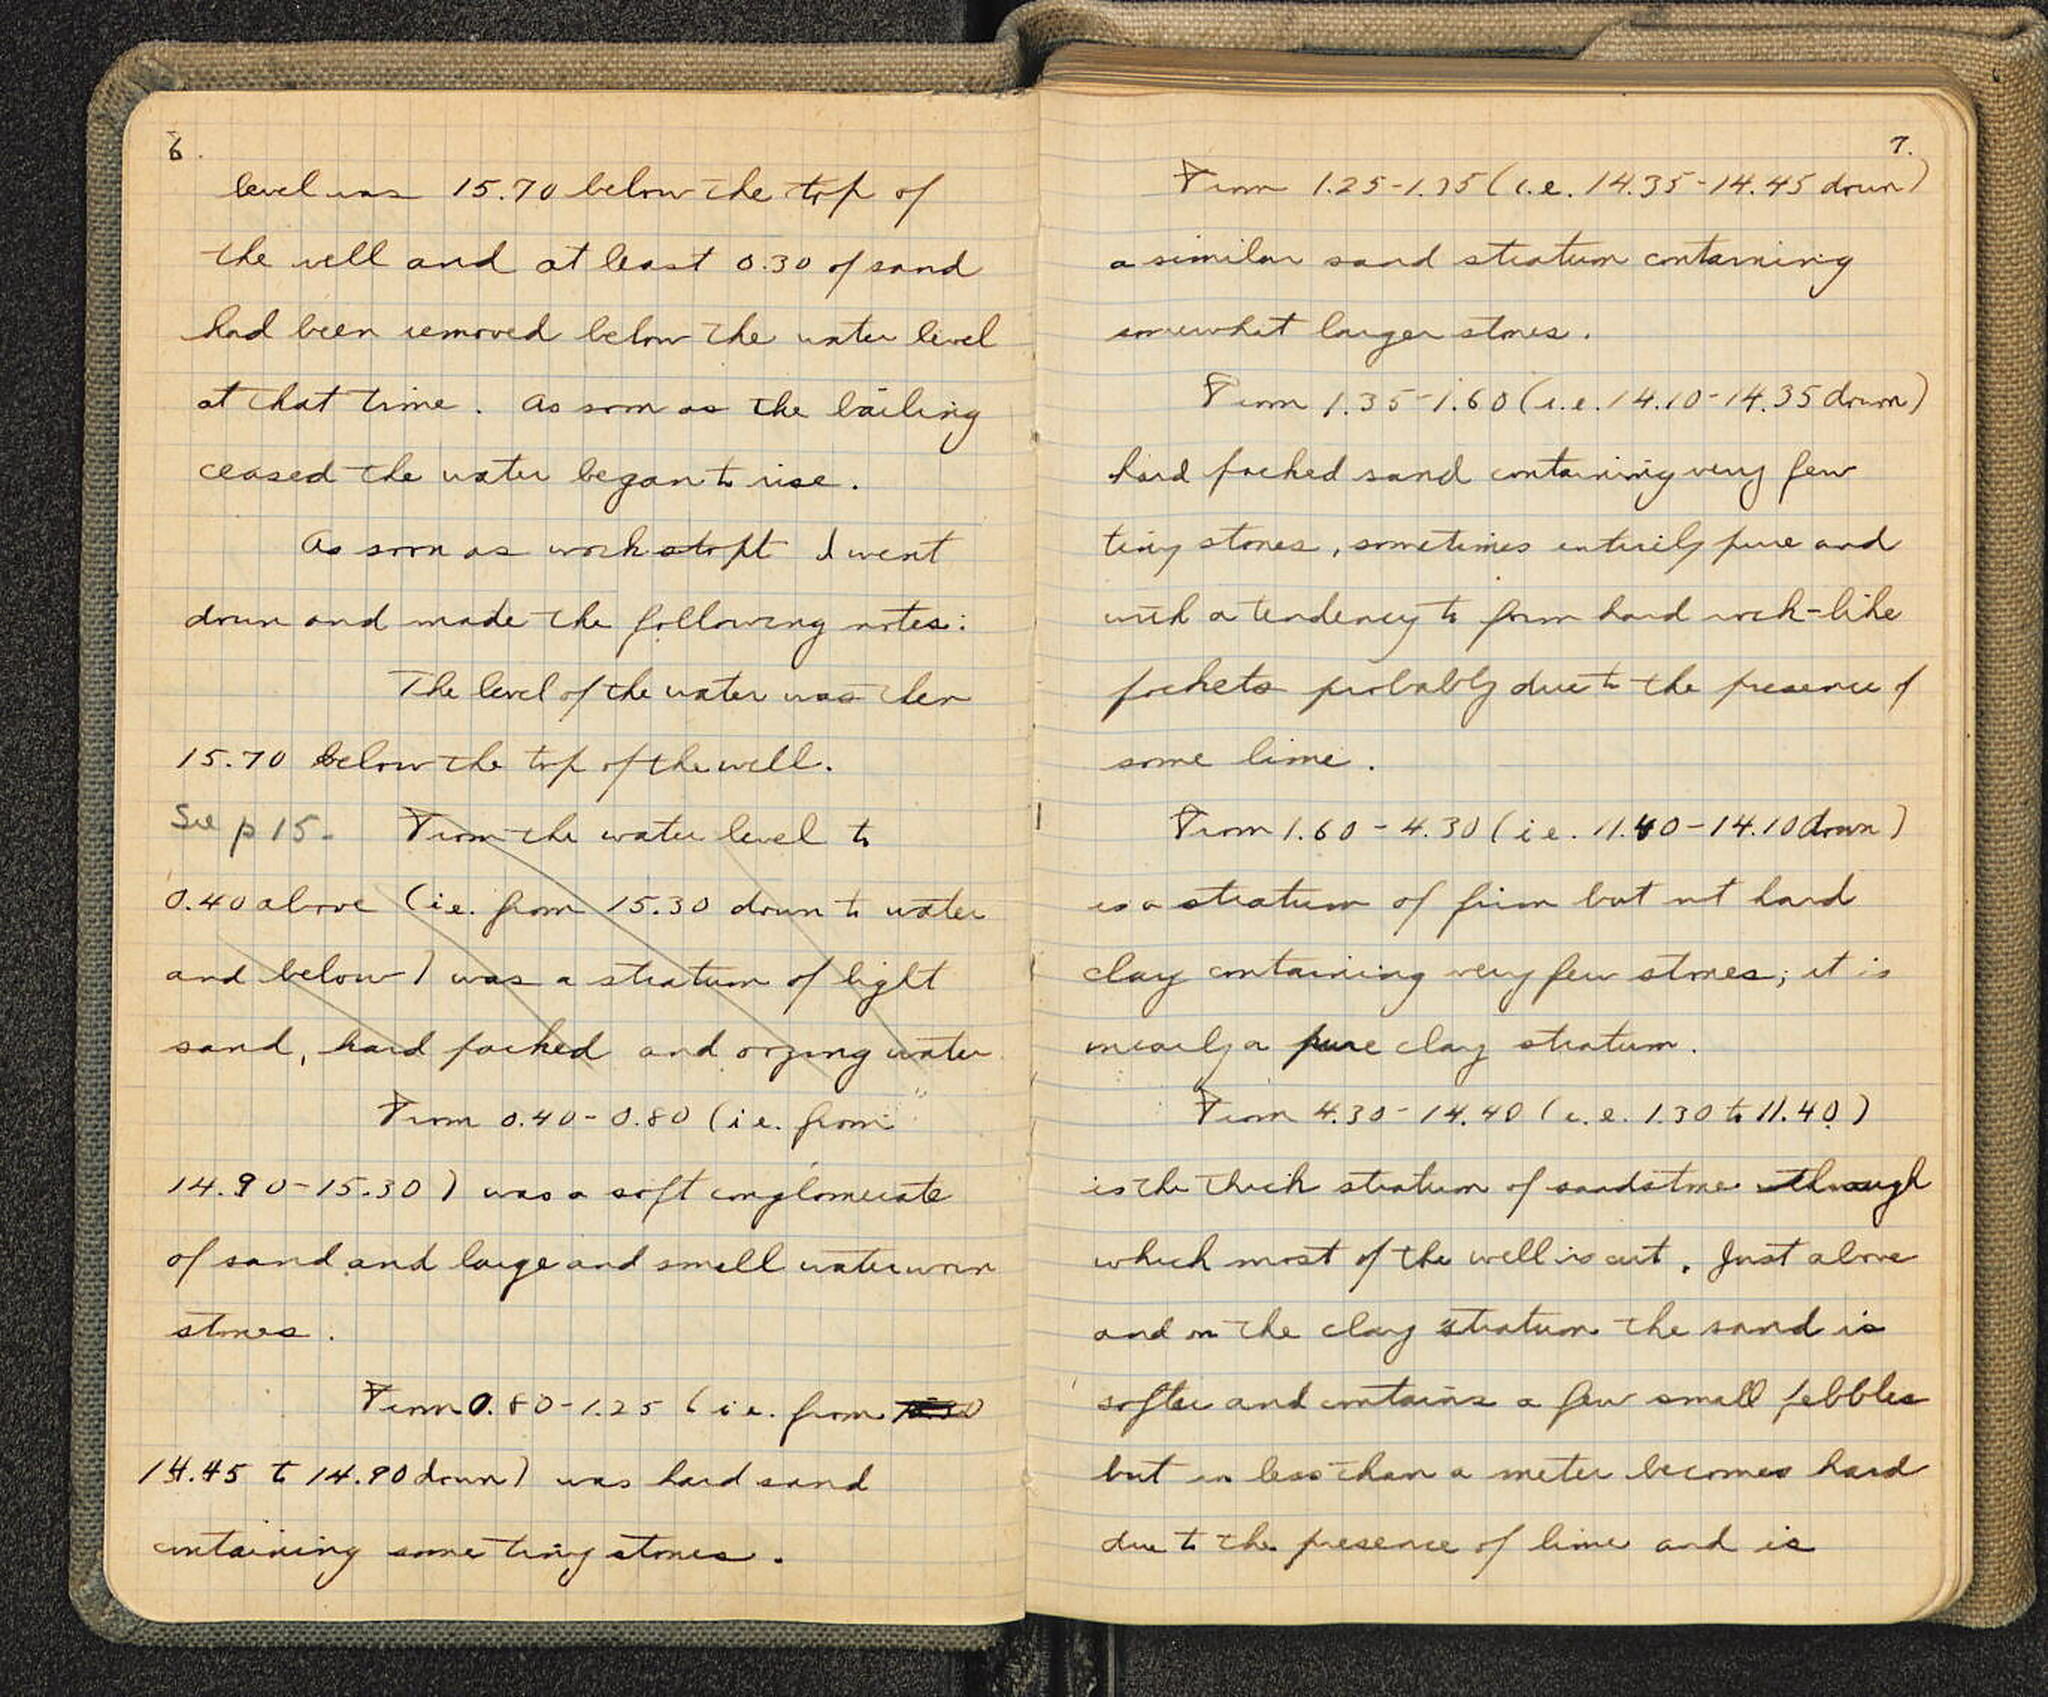 6.
level was 15.70 below the top of
the well and at least 0.30 of sand
had been removed below the water level
at that time. As soon as the bailing
ceased the water began to rise.
As soon as work stopt I went
down and made the following notes:
The level of the water was then
15.70 below the top of the well.
See p 15. From the water level to
0.40 above (i.e. from 15.30 down to water
and below) was a stratum of light
sand, hard packed and oozing water
From 0.40-0.80 (i.e. from
14.90-15.30) was a soft conglomerate
of sand and large and small waterworn
stones.
From 0.80-1.25 (i.e. from
14.45 to 14.90 down) was hard sand
containing some tiny stones.
7.
From 1.25-1.35 (i.e. 14.35-14.45 down)
a similar sand stratum containing
somewhat larger stones.
From 1.35-1.60 (i.e. 14.10-14.35 down)
hard packed sand containing very few
tiny stones, sometimes entirely pure and
with a tendency to form hard rock-like
pockets probably due to the presence of
some lime.
From 1.60-4.30 (i.e. 11.40-14.10 down)
is a stratum of firm but not hard
clay containing very few stones; it is
nearly a pure clay stratum.
From 4.30-14.40 (i.e. 1.30 to 11.40)
is the thick stratum of sandstone through
which most of the well is cut. Just above
and on the clay stratum the sand is
softer and contains a few small pebbles
but in less than a meter becomes hard
due to the presence of lime and is